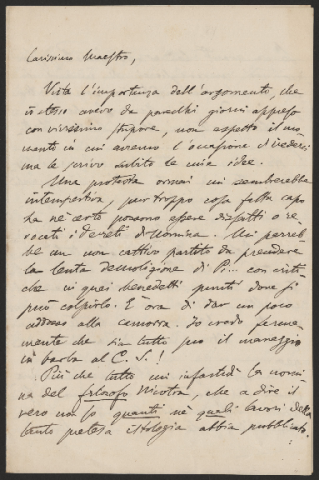 Carissimo Maestro,
Vista l'importanza dell'argomento, che
io stesso avevo da parecchi giorni appreso
con vivissimo stupore, non aspetto il mo-
mento in cui avremo l'occasione di vederci
ma le scrivo subito le mie idee.
Una protesta ormai mi sembrerebbe
intempestiva, pur troppo cosa fatta capo
ha nè certo possono essere disfatti o re-
vocati i decreti di nomina. Mi parreb-
be un non cattivo partito da prendere
la lenta demolizione di P... con critiche
che in quei benedetti punti dove si
può colpirlo. È ora di dar un poco
addosso alla camorra. Io credo ferma-
mente che sia tutto un maneggio
in barba al C. S.!
Più che tutto mi infastidì la nomi-
na del filosofo Nicotra, che a dire il
vero non so quanti nè quali lavori della
tanto pretesa istologia abbia pubblicato.